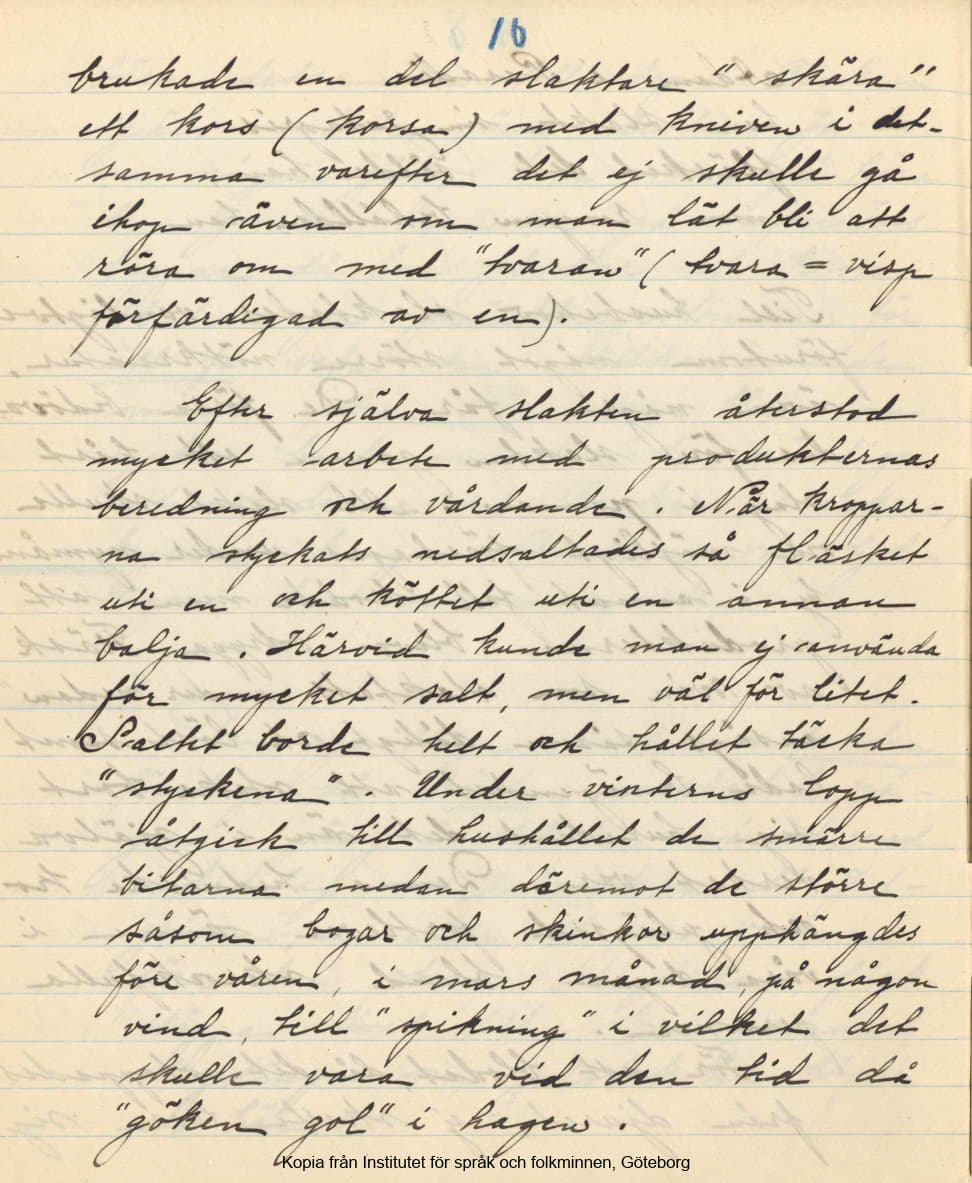 16
brukade en del slaktare "skära"
ett kors (korsa) med kniven i det-
samma varefter det ej skulle gå
ihop även om man lät bli att
röra om med "tvaran" (tvara = visp
förfärdigad av en).
Efter själva slakten återstod
mycket arbete med produkternas
beredning och vårdande. När kroppar-
na styckats nedsaltades så fläsket
uti en och köttet uti en annan
balja. Härvid kunde man ej använda
för mycket salt, men väl för litet.
Saltet borde helt och hållet täcka
"styckena". Under vinterns lopp
åtgick till hushållet de smärre
bitarna medan däremot de större
såsom bogar och skinkor upphängdes
före våren, i mars månad, på någon
vind, till "spikning" i vilket det
skulle vara vid den tid då
"göken gol" i hagen.
Kopia från Institutet för språk och folkminnen, Göteborg